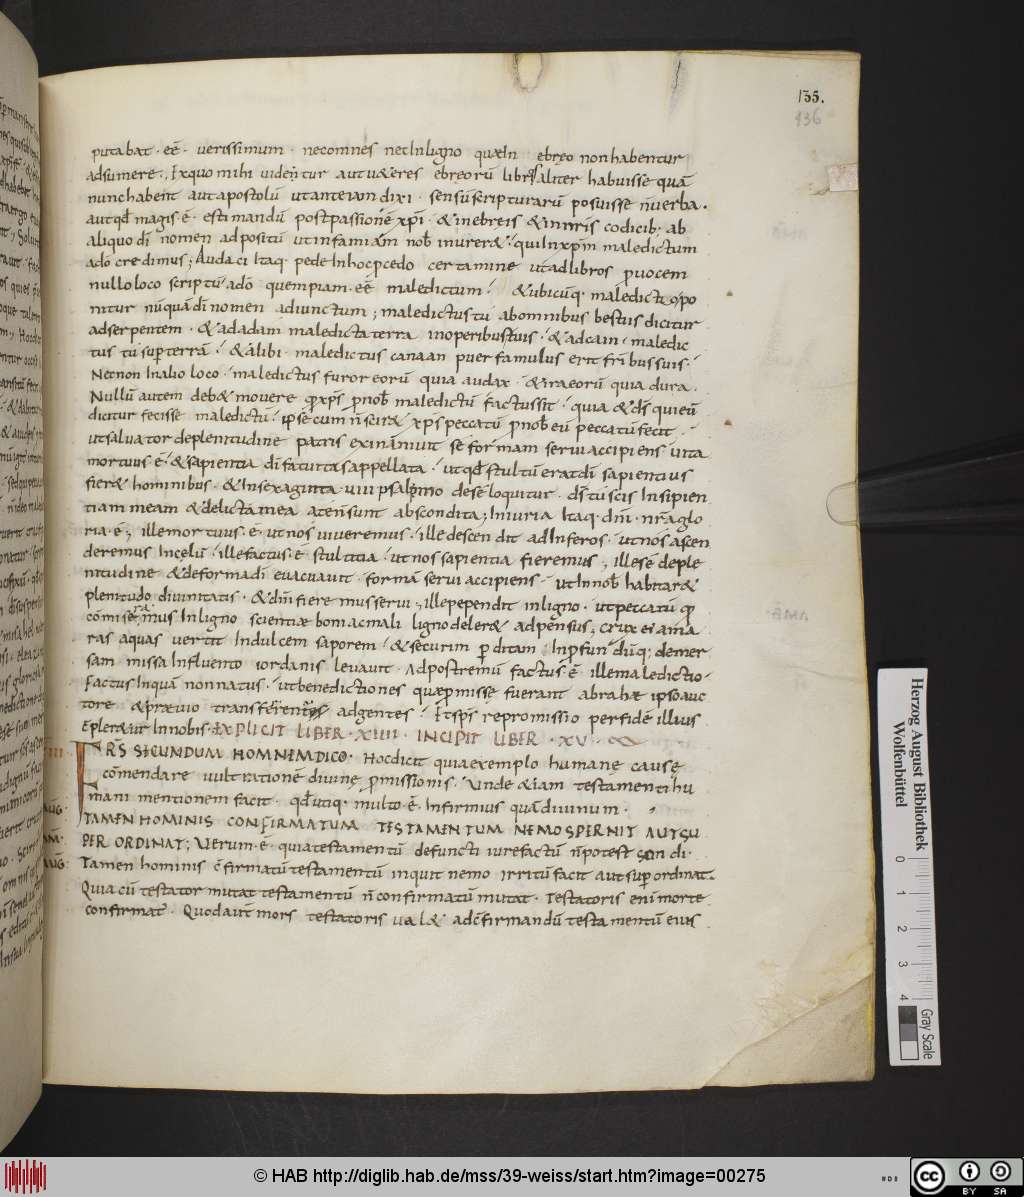 135.
136
putabat · eē · verissimum · necomnes nec Inligno quæ In ebreo non habentur
adsumere · Exquo mihi videntur aut u&eres ebreorū libros aliter habuisse quā
nunc habent aut apostolū ut ante iam dixi · sensū scripturarū posuisse n̄ verba.
aut qd̄ magis ·ē· estimandū post passionē xp̄i · & in ebreis & in nr̄is codicib; ab
aliquo dī nomen adpositū ut infamiam nob̄ inurer& · qui In xp̄m maledictum
adō credimus; Audaci Itaq· pede In hoc p̄cedo certamine ut ad libros p̄uocem
nullo loco scriptū adō quempiam · eē maledictum · & ubicūq· maledictio po
nitur nūquā dī nomen adiunctum; maledictus tu ab omnibus bestiis dicitur
ad serpentem · & ad adam maledicta terra in operibus tuis · & ad cain · maledic
tus tū sup̄ terrā · & alibi · maledictus canaan puer famulus erit fr̄ibus suis ·
Necnon In alio loco · maledictus furor eorū quia audax · & ira eorū quia dura ·
Nullū autem deb& movere q̄ xp̄s p̄ nob̄ maledictū factus sit · quia & d̄s qui eū
dicitur fecisse maledictū · ipse cum n̄ scir& xp̄s peccatū p̄ nob̄ eū peccatū fecit ·
ut salvator de plenitudine patris exinanivit se formam servi accipiens vita
mortuus ·ē· & sapientia dī fatuitas appellata · ut qd̄ stultū erat dī sapientius
fier& hominibus · & In sexaginta · viii psalmo de se loquitur · d̄s tu scis Insipien
tiam meam & delicta mea a te n̄ sunt abscondita; Iniuria Itaq· dn̄i · nr̄a glo
ria ·ē·; ille mortuus ·ē· ut nos viveremus · ille descendit ad Inferos · ut nos ascen
deremus In celū · ille factus ·ē· stultitia · ut nos sapientia fieremus; ille se deple
nitudine & de forma dī evacuavit · formā servi accipiens · ut In nob̄ habitar&
plenitudo divinitatis · & dn̄i fieremus servi; ille pependit in ligno · ut peccatū q̄
cōmiseramus In ligno scientiæ boni ac mali ligno deler& adpensus; crux ei ama
ras aquas vertit In dulcem saporem · & securim p̄ditam · In p̄fundūq; demer
sam missa In fluento iordanis levavit · Ad postremū factus ·ē· ille maledictio ·
Factus Inquā non natus · ut benedictiones quæ p̄misse fuerant abrahæ ipso auc
tore & prævio transferrentur ad gentes · Et sp̄s repromissio per fidē illius
Epler&ur In nobis · EXPLICIT LIBER · XIIII · INCIPIT LIBER · XV ·
FRS̄ SECUNDUM HOMINEM DICO · Hoc dicit quia exemplo humane cause
cōmendare vult rationē divine p̄missionis · Unde & iam testamenti hu
mani mentionem facit · qd̄ utiq· multo ·ē· Infirmius quā divinum ·
AUG·
TAMEN HOMINIS CONFIRMATUM TESTAMENTUM NEMO SPERNIT AUT SU
PER ORDINAT; Verum ·ē· quia testamentū defuncti iure factū n̄ potest scindi ·
AUG·
Tamen hominis c̄firmatū testamentum inquit nemo irritū facit aut sup̄ ordinat ·
Quia cū testator mutat testamentū n̄ confirmatū mutat · Testatoris eni morte
confirmat̄ · Quod aut̄ mors testatoris val& ad c̄firmandū testamentū eius
Herzog August Bibliothek
Wolfenbüttel
0 1 2 3 4
Gray Scale
© HAB http://diglib.hab.de/mss/39-weiss/start.htm?image=00275
cc BY SA